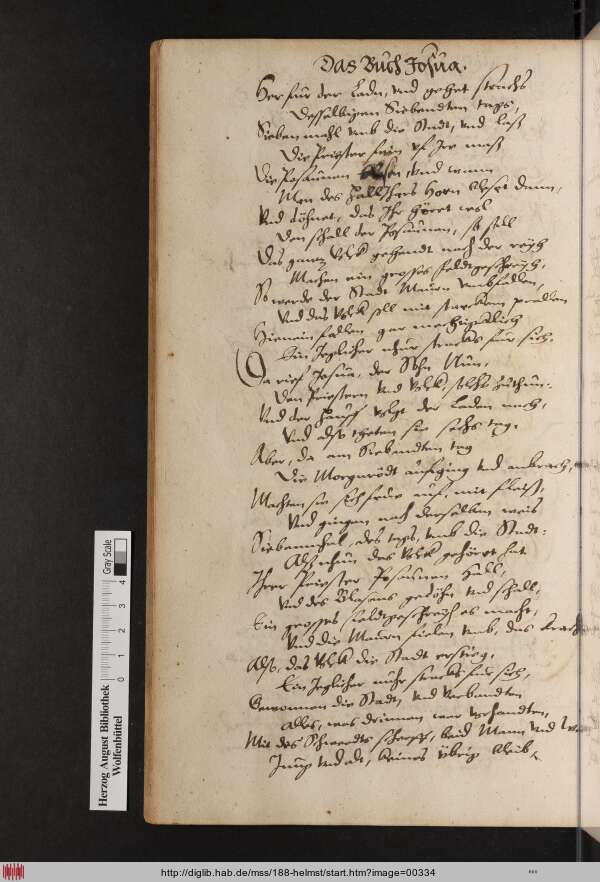 Das Buch Josua.
Her für der Laden, vnd gehet strachs
Desselbigen Siebendten tags,
Sieben mahl vmb die Stadt, vnd laß
Die Priester sein vf Jre maß
Die Posaunen blasen, vnd wann
Man des HallJhars Horn bleset dann,
Vnd döhnet, das Jhr höret wol
Den schall der Posaunen, so soll
Das gantz Volk gehendt nach der
Machen ein grosses feldtgeschrey,
So werde der Stadt Mauren vmbfallen,
Vnd das Volk soll mit starckem prallen
Hienein fallen gar
Ein Jeglicher nhur stracks für sich.
Da rief Josua, der Sohn Nun,
Den Priestern vnd Volk, solchs zuthun.
Vnd der hauff volgt der Laden nach,
Vnd also theten sie sechs tag.
Aber, da am Siebendten tag
Die Morgenrödt aufging vnd anbrach,
Machten sie sich frue auf, mit fleiß,
Vnd gingen nach derselben weis
Siebenmhal, des tags, vmb die Stadt.
Als nhun das Volk gehöret hat
Jhrer Priester Posaunen hall,
Vnd des Blasens gedöhn vnd schall,
Ein grosses feldtgeschrey es macht,
Vnd die Mauren fielen vmb, das
Also, das Volk die Stadt erstieg,
Ein Jeglicher nuhr stracks für sich,
Gewonnen die Stadt, vnd Verbandten
Alles, was drinnen war vorhandten,
Mit des Schwerdts scherpff, beid Mann vnd
Jung vnd alt, keines übrig bleib.
Herzog August Bibliothek
Wolfenbüttel
Gray Scale
0 1 2 3 4
http://diglib.hab.de/mss/188-helmst/start.htm?image=00334